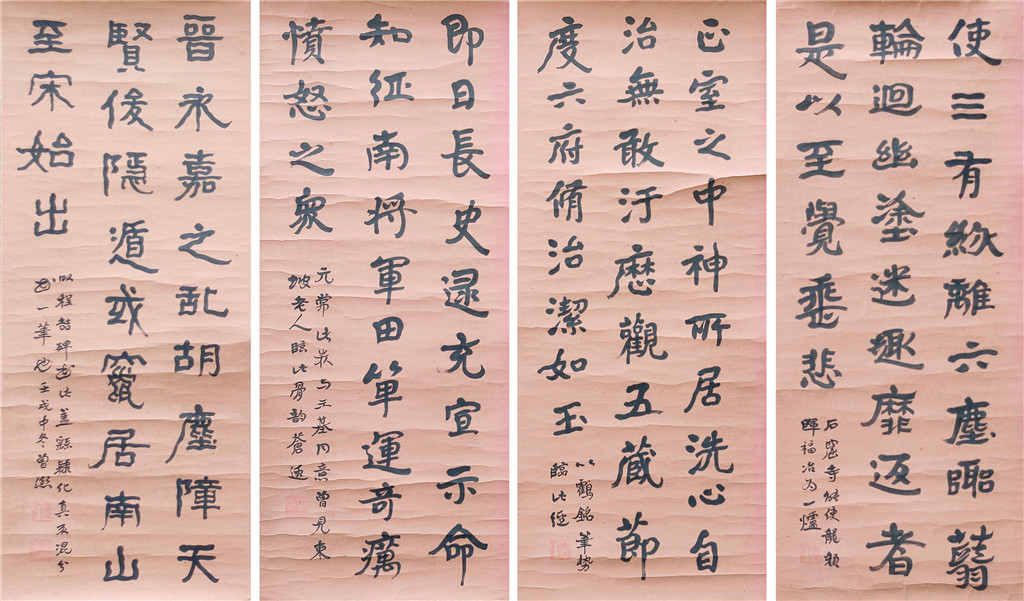 使三有離六塵
輪迴幽塗迷趣靡返者
是以至覺垂悲
石窟寺能使龍顏
暉福冶為一爐
正室之中神所居洗心自
治無敢汙歷觀五藏節
度六府脩治潔如玉
以鶴銘筆勢
臨此經
即日長史逯充宣示命
知征南將軍田單運奇癘
憤怒之衆
元常此表与王基同意曾見東
坡老人臨此骨韵蒼逸
晉永嘉之乱胡塵障天
賢俊隱遁或竄居南山
至宋始出
以程喆碑書此蓋繇隸化真混分
一筆也壬戌中冬曾熙